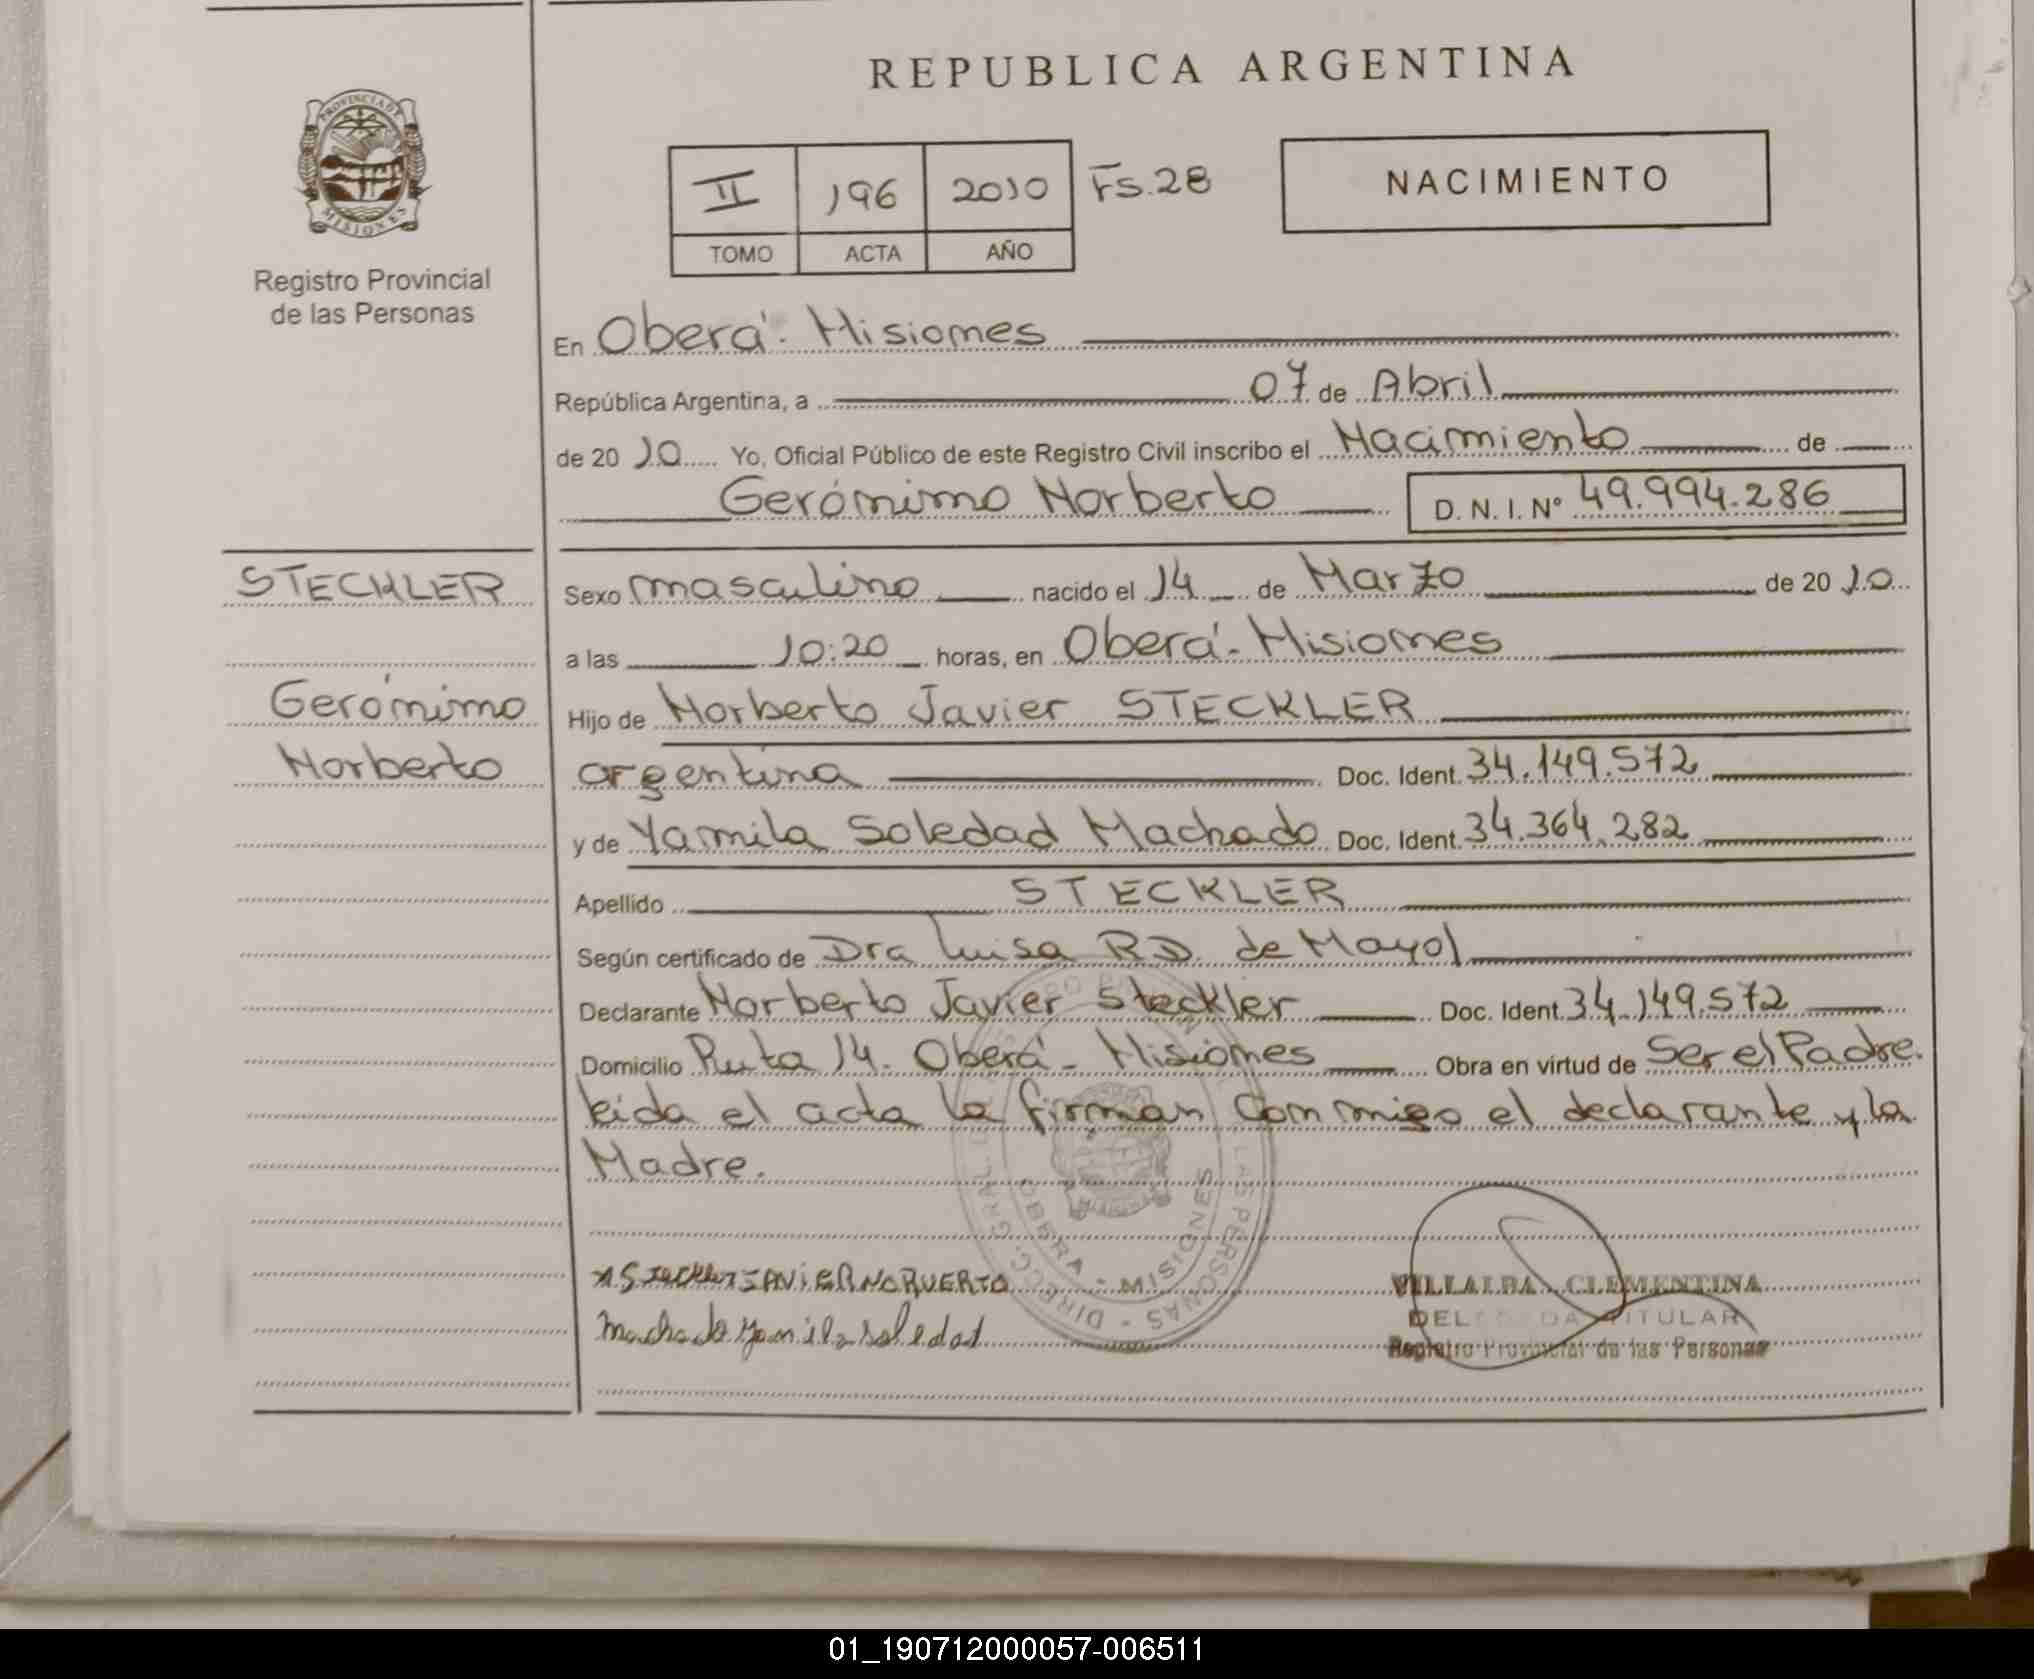 REPUBLICA ARGENTINA
PROVINCIA DE MISIONES
Registro Provincial
de las Personas
II 196 2010 Fs. 28
TOMO ACTA AÑO
NACIMIENTO
En Oberá - Misiones
República Argentina, a 07 de Abril
de 20 10 Yo, Oficial Público de este Registro Civil inscribo el Nacimiento de
Gerónimo Norberto D. N. I. Nº 49.994.286
STECKLER
Gerónimo
Norberto
Sexo masculino nacido el 14 de Marzo de 20 10
a las 10:20 horas, en Oberá - Misiones
Hijo de Norberto Javier STECKLER
argentina Doc. Ident. 34.149.572
y de Yamila Soledad Machado Doc. Ident. 34.364.282
Apellido STECKLER
Según certificado de Dra Luisa R D. de Mayol
Declarante Norberto Javier Steckler Doc. Ident. 34.149.572
Domicilio Ruta 14. Oberá - Misiones Obra en virtud de Ser el Padre.
leida el acta la firman conmigo el declarante y la
Madre.
OBERA - MISIONES
Steckler JAVIER NORVERTO
Machado Yamila Soledad
VILLALBA CLEMENTINA
DELEGADA TITULAR
Registro Provincial de las Personas
01_190712000057-006511